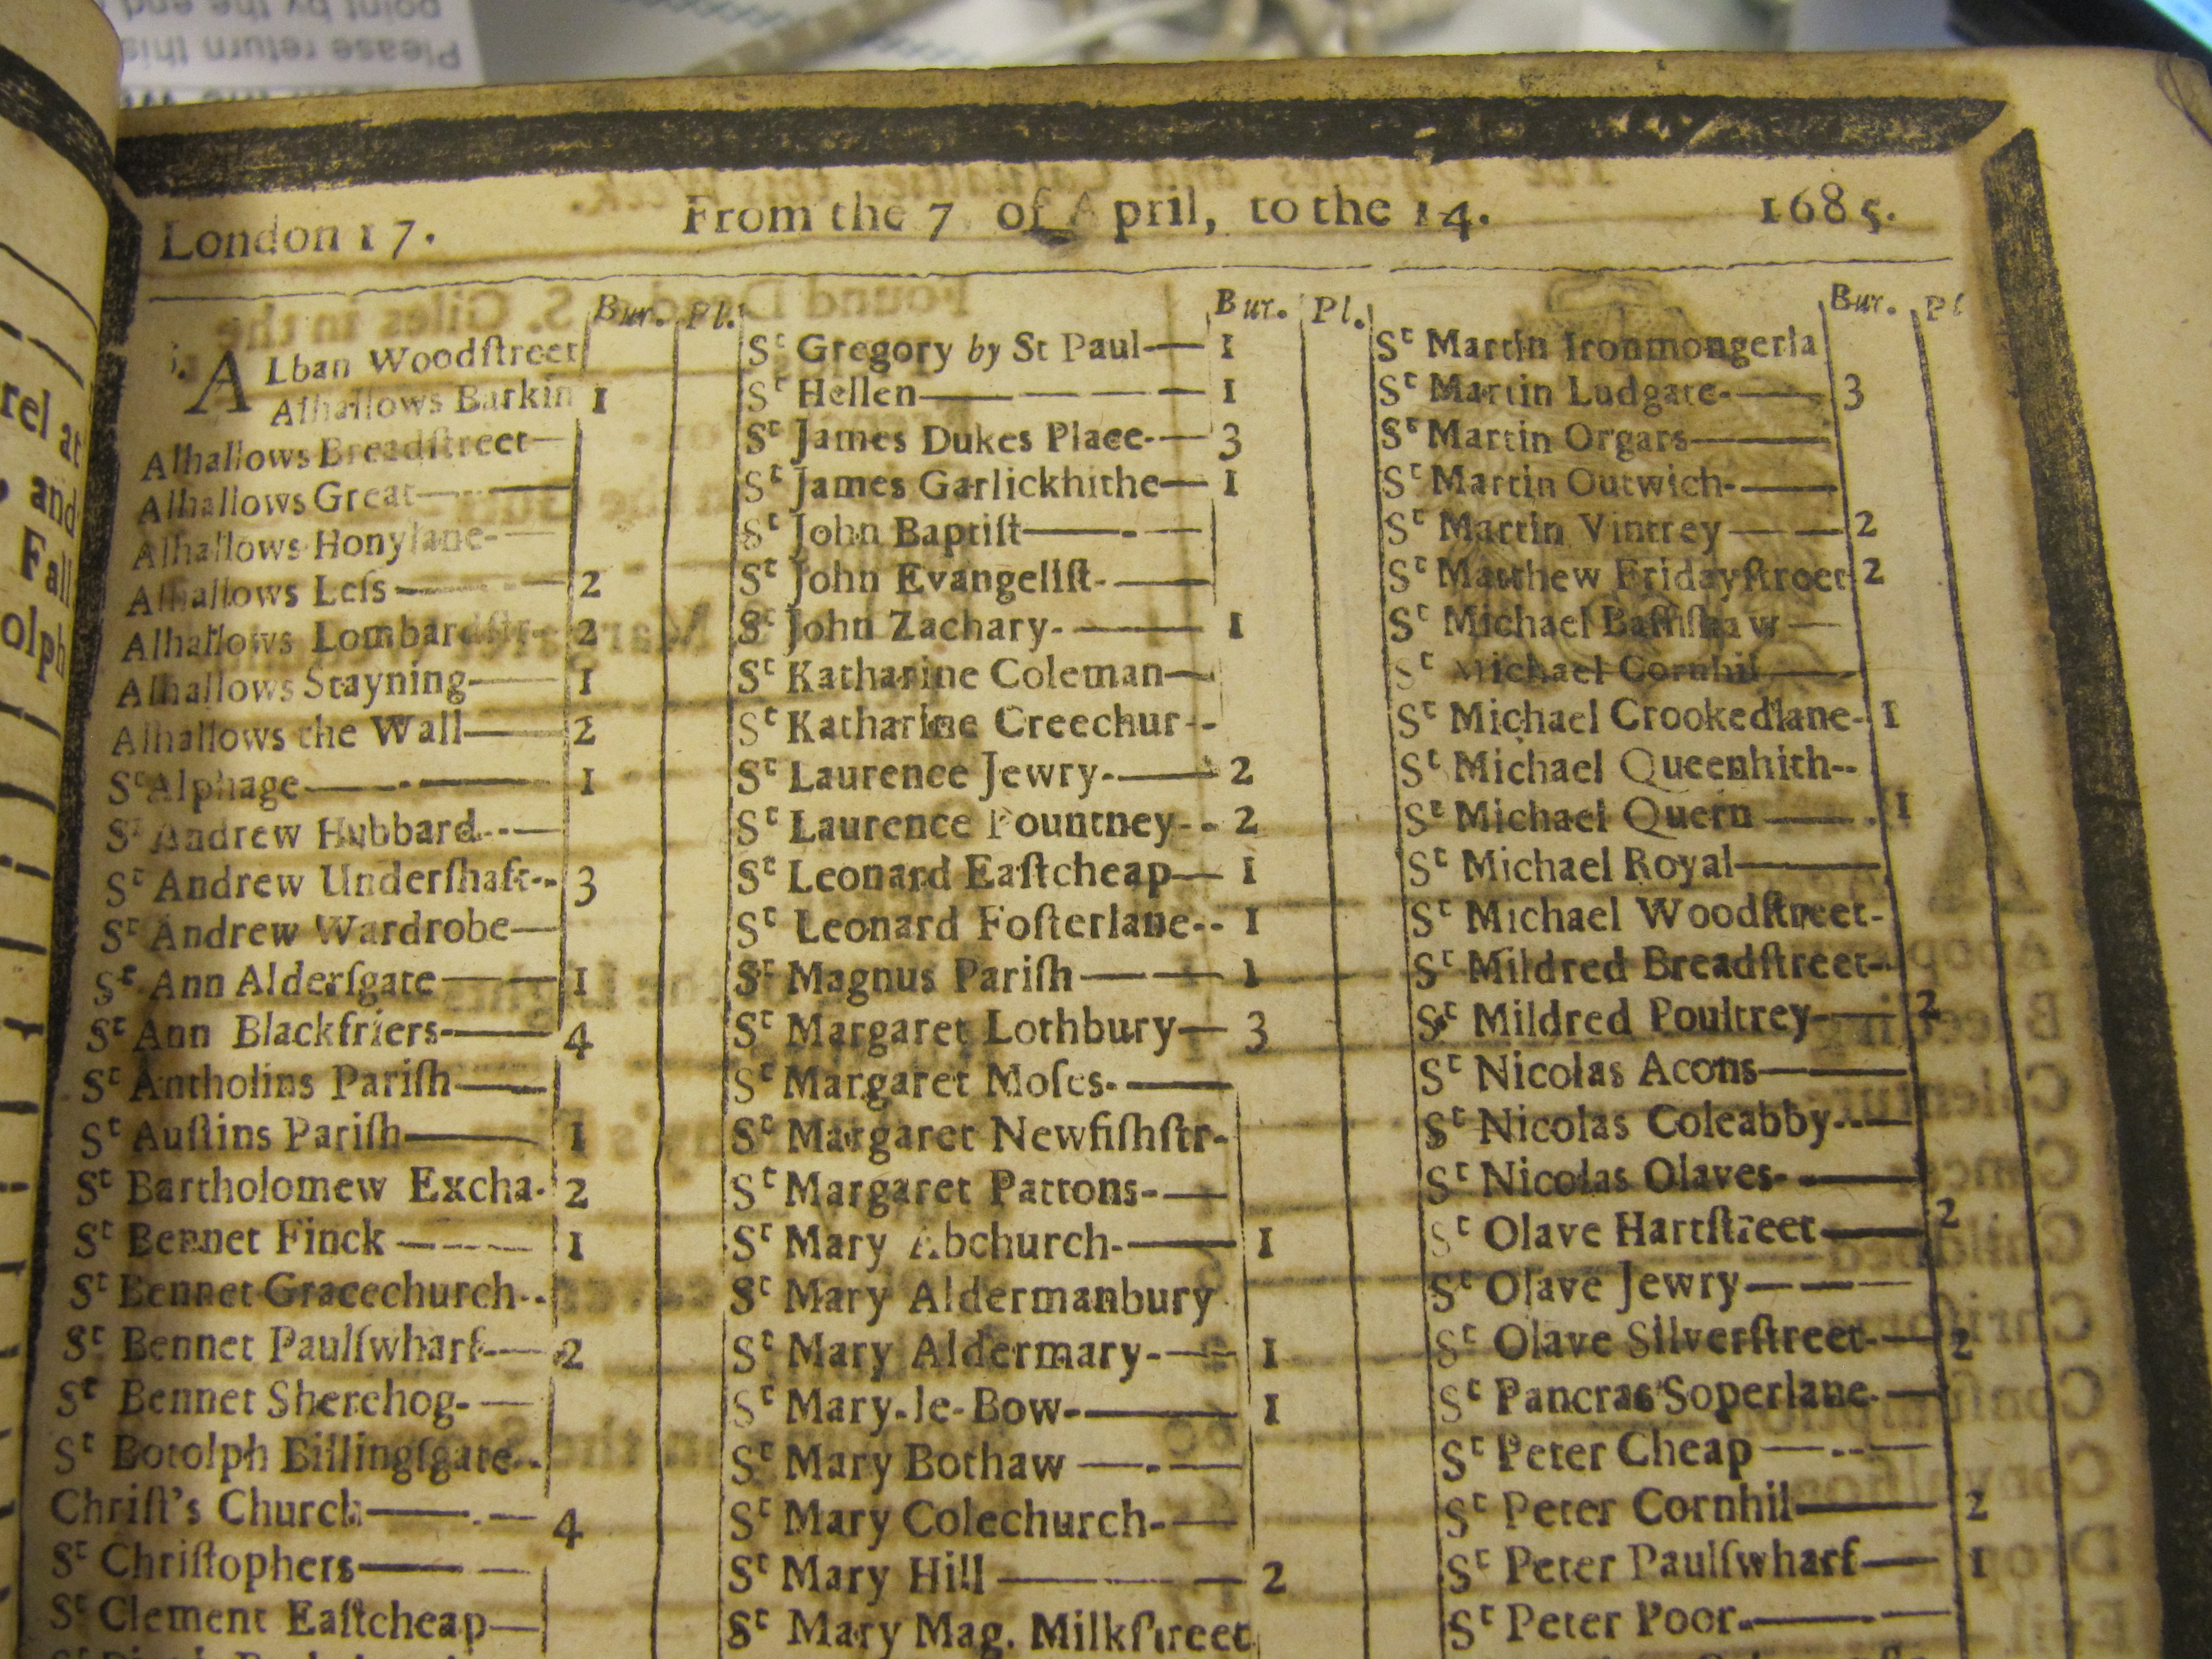 London 17. From the 7 of April, to the 14. 1685.
Bur. Pl.
ALban Woodſtreet
Alhallows Barkin 1
Alhallows Breadſtreet—
Alhallows Great—
Alhallows Honylane-—
Alhallows Leſs—— 2
Alhallows Lombardſtr- 2
Alhallows Stayning—— 1
Alhallows the Wall—— 2
St Alphage—— 1
St Andrew Hubbard---—
St Andrew Underſhaft-- 3
St Andrew Wardrobe—
St Ann Alderſgate—— 1
St Ann Blackfriers-—— 4
St Antholins Pariſh——
St Auſtins Pariſh—— 1
St Bartholomew Excha. 2
St Bennet Finck —--— 1
St Bennet Gracechurch--
St Bennet Paulſwharf-— 2
St Bennet Sherehog-—
St Botolph Billingſgate--
Chriſt's Church—— 4
St Chriſtophers——
St Clement Eaſtcheap—
Bur. Pl.
St Gregory by St Paul-— 1
St Hellen———— 1
St James Dukes Place-— 3
St James Garlickhithe— 1
St John Baptiſt——-—
St John Evangeliſt-——
St John Zachary-—— 1
St Katharine Coleman—
St Katharine Creechur--
St Laurence Jewry-—— 2
St Laurence Pountney-- 2
St Leonard Eaſtcheap— 1
St Leonard Foſterlane-- 1
St Magnus Pariſh—— 1
St Margaret Lothbury— 3
St Margaret Moſes-——
St Margaret Newfiſhſtr-
St Margaret Pattons-—
St Mary Abchurch-—— 1
St Mary Aldermanbury
St Mary Aldermary-— 1
St Mary-le-Bow-—— 1
St Mary Bothaw —-—
St Mary Colechurch-—
St Mary Hill ——— 2
St Mary Mag. Milkſtreet
Bur. Pl
St Martin Ironmongerla
St Martin Ludgate-—— 3
St Martin Orgars——
St Martin Outwich-——
St Martin Vintrey —— 2
St Matthew Fridayſtreet 2
St Michael Baſſiſhaw—
St Michael Cornhil——
St Michael Crookedlane- 1
St Michael Queenhith--
St Michael Quern —— 1
St Michael Royal——
St Michael Woodſtreet-
St Mildred Breadſtreet-
St Mildred Poultrey-— 2
St Nicolas Acons——
St Nicolas Coleabby--—
St Nicolas Olaves-——
St Olave Hartſtreet—— 2
St Olave Jewry———
St Olave Silverſtreet-— 2
St Pancras Soperlane-—
St Peter Cheap —--—
St Peter Cornhil—— 2
St Peter Paulſwharf—— 1
St Peter Poor-——
rel at
and
Fall
olph
Please return this
point by the end